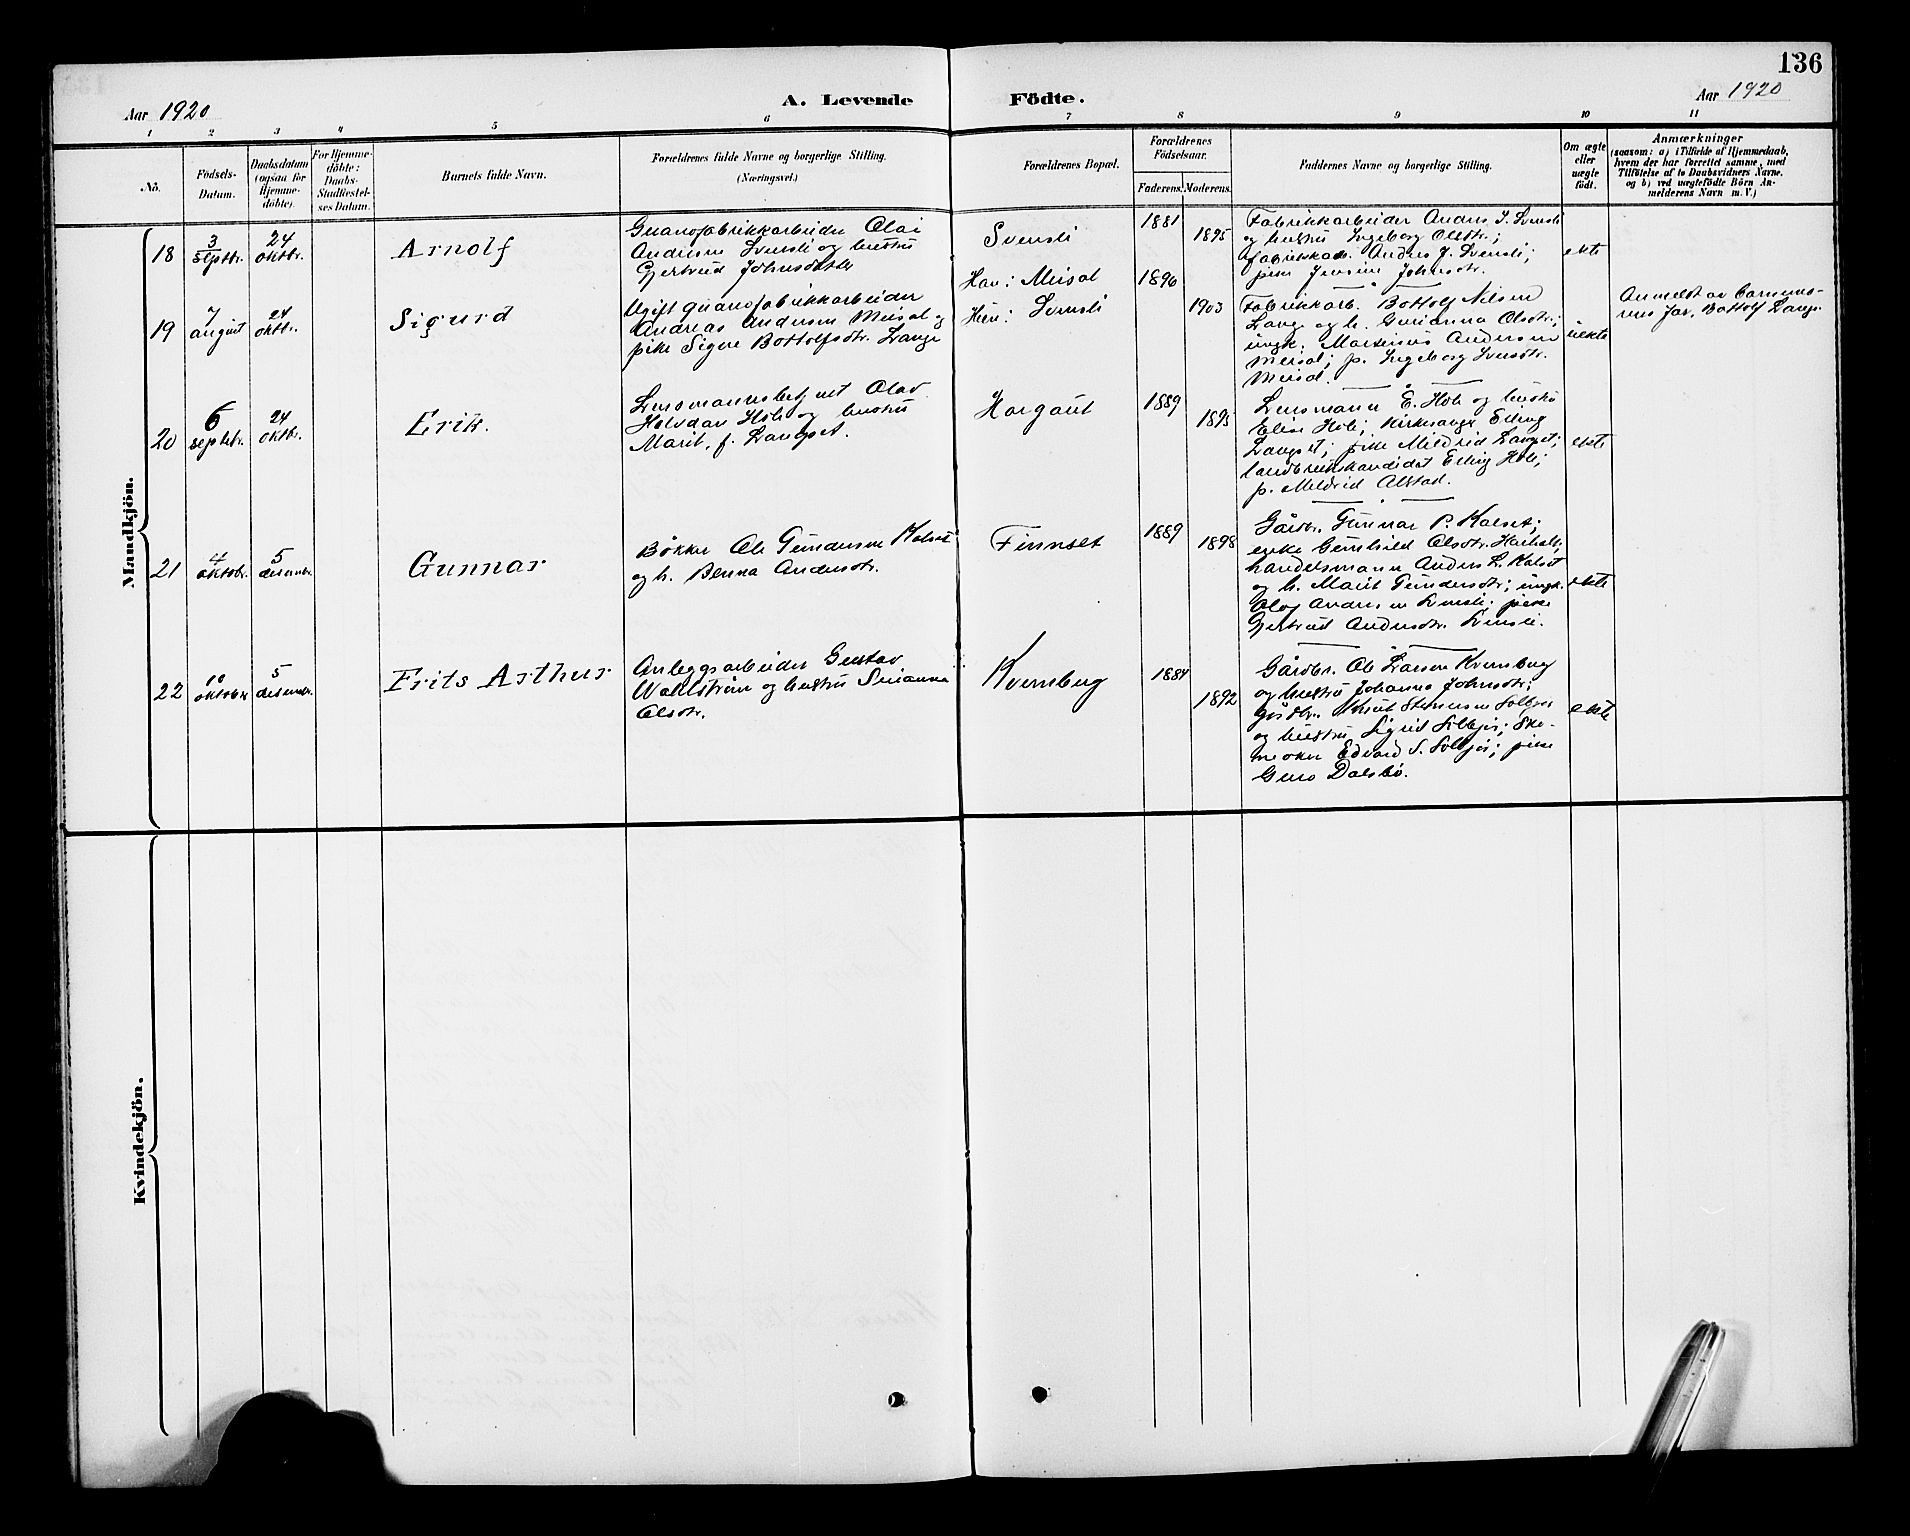 136
Aar 1920
A. Levende Födte.
Aar 1920
1 2 3 4 5 6 7 8 9 10 11
No.
Födsels-Datum.
Daabsdatum (ogsaa for Hjemme-döbte).
For Hjemme-döbte: Daabs-Stadfæstel-ses Datum.
Barnets fulde Navn.
Forældrenes fulde Navne og borgerlige Stilling.
(Næringsvei.)
Forældrenes Bopæl.
Forældrenes Födselsaar.
Faderens. Moderens.
Faddernes Navne og borgerlige Stilling.
Om ægte eller uægte födt.
Anmærkninger
(saasom: a) i Tilfælde af Hjemmedaab,
hvem der har forrettet samme, med
Tilföielse af to Daabsvidners Navne,
og b) ved uægtefödte Börn An-
melderens Navn m. V.)
Mandkjön.
18
3 septbr.
24 oktbr.
Arnolf
Guanofabrikkarbeider Olai
Andersen Svensli og hustru
Gjertrud Johnsdatter
Svensli
1881
1895
Fabrikkarbeider Anders J. Svensli
og hustru Ingeborg Olsdtr.;
fabrikkarb. Anders J. Svensli;
pike Jensine Johnsdtr.
ekte
19
7 august
24 oktbr.
Sigurd
Ugift guanofabrikkarbeider
Andreas Andersen Meisal og
pike Signe Bottolfsdtr. Lange
Han: Meisal
Hun: Svensli
1896
1903
Fabrikkarb. Bottolf Nilsen
Lange og h. Gurianna Olsdtr.;
ungk. Martinus Andersen
Meisal; p. Ingeborg Iversdtr.
Meisal.
uekte
Anmeldt av barnemo-
rens far, Bottolf Lange
20
6 septbr.
24 oktbr.
Erik.
Lensmannsbetjent Olav
Halvdan Hole og hustru
Marit, f. Langset.
Horgaut
1889
1895
Lensmann E. Hole og hustru
Elise Hole; kirkesanger Erling
Langset; pike Mildrid Langset;
landbrukskandidat Erling Hole;
p. Mildrid Alstad.
ekte
21
4 oktobr.
5 desembr.
Gunnar
Bøkker Ole Gundersen Kalset
og h. Berna Andersdtr.
Finnset
1889
1898
Gårdbr. Gunnar P. Kalset;
enke Gunhild Olsdtr.
handelsmann Anders L. Kalset
og h. Marit Gundersdtr; ungk.
Olaf Andersen Svensli; pike
Gjertrud Andersdtr. Svensli.
ekte
22
10 oktobr.
5 desembr.
Frits Arthur
Anleggsarbeider Gustav
Wahlstrøm og hustru Surianna
Olsdtr.
Kvernberg
1884
1892
Gårdbr. Ole Larsen Kvernberg
og hustru Johanna Johnsdtr;
gårdbr. Knut Stenersen Solbjør
og hustru Sigrid Solbjør; Sko-
maker Edvard S. Solbjør; pike
Guro Dalsbø.
ekte
Kvindekjön.